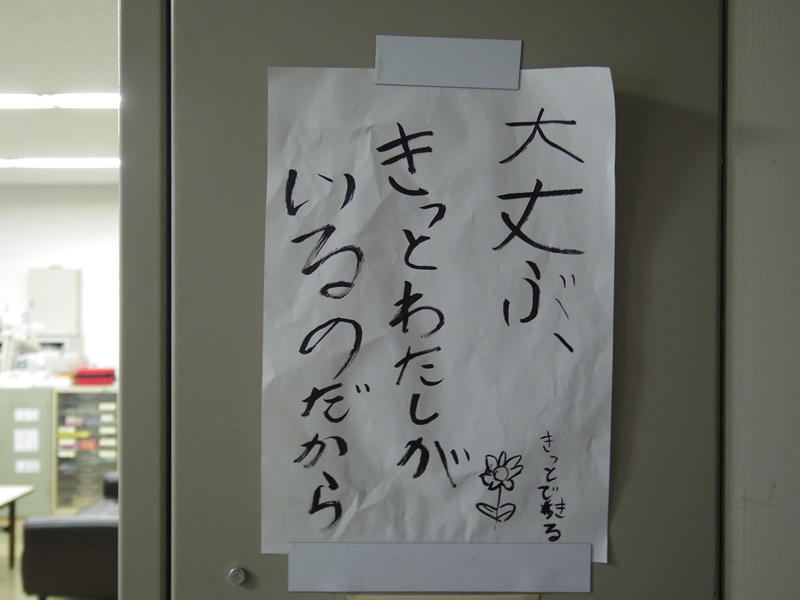 大丈ぶ、
きっとわたしが
いるのだから
きっとできる